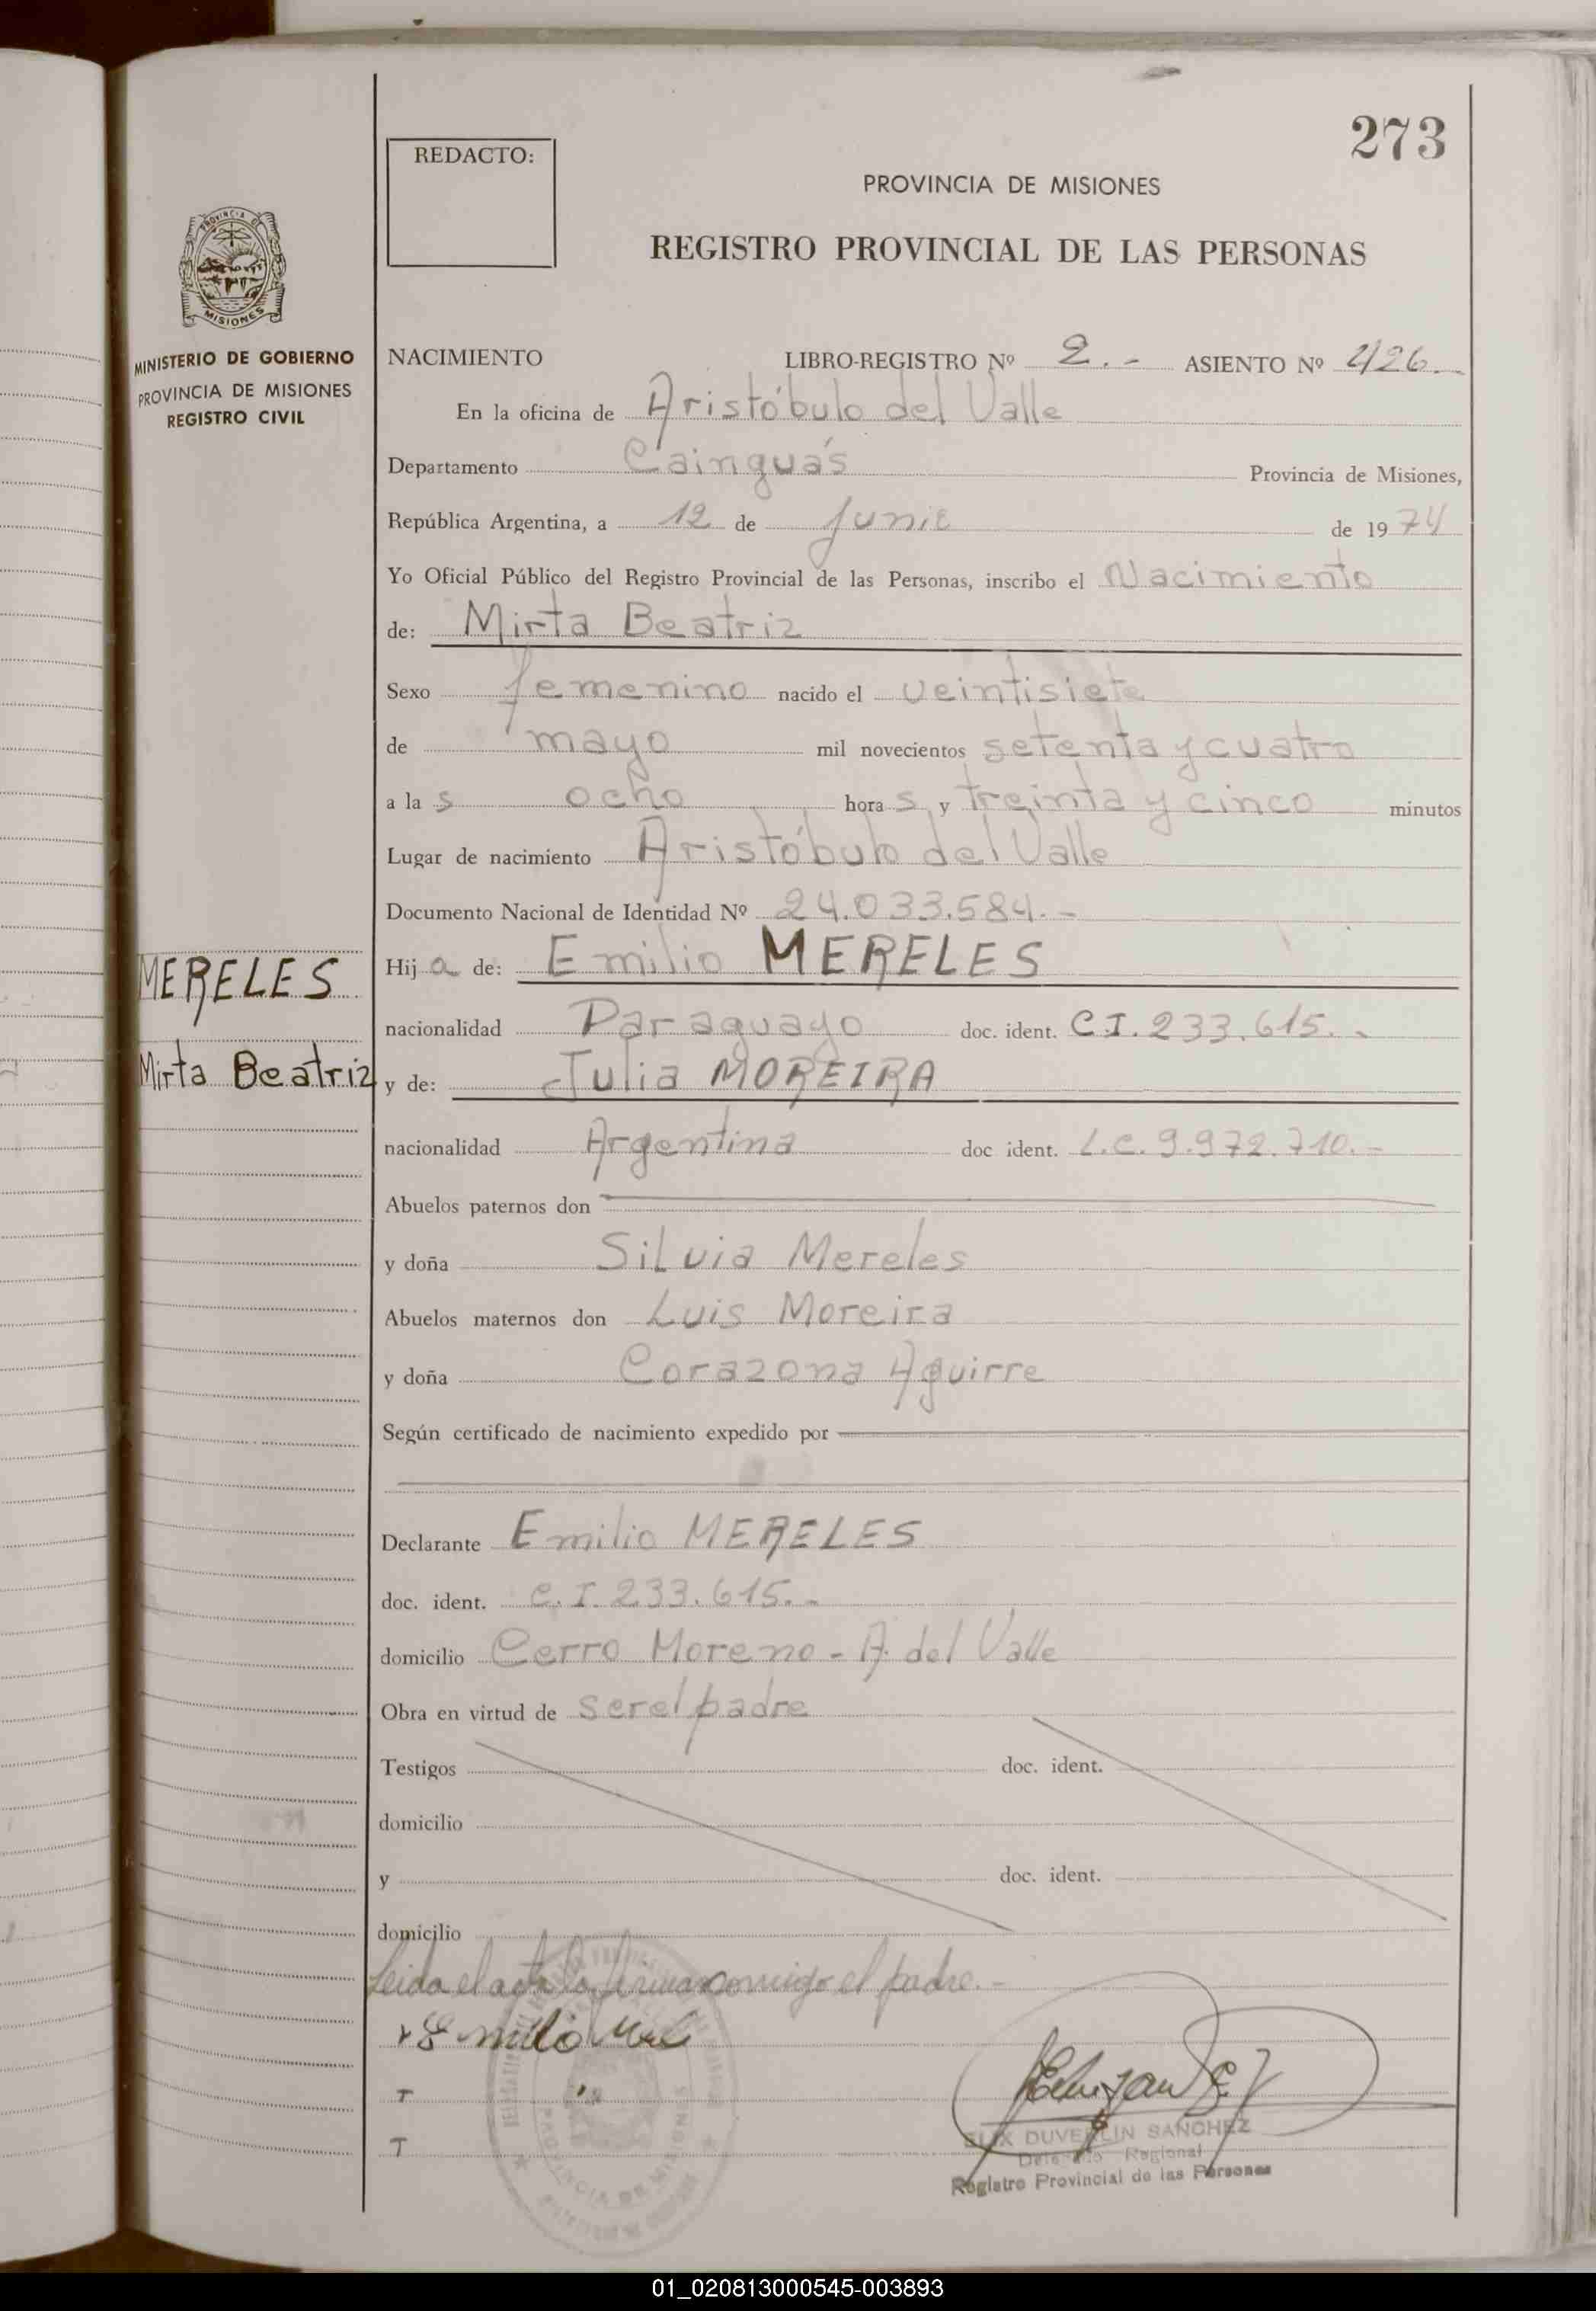 273
REDACTO:
PROVINCIA DE MISIONES
REGISTRO PROVINCIAL DE LAS PERSONAS
PROVINCIA DE
MISIONES
MINISTERIO DE GOBIERNO
PROVINCIA DE MISIONES
REGISTRO CIVIL
NACIMIENTO LIBRO-REGISTRO Nº 2.- ASIENTO Nº 426.
En la oficina de Aristóbulo del Valle
Departamento Cainguás Provincia de Misiones,
República Argentina, a 12 de Junio de 1974
Yo Oficial Público del Registro Provincial de las Personas, inscribo el Nacimiento
de: Mirta Beatriz
Sexo femenino nacido el veintisiete
de mayo mil novecientos setenta y cuatro
a las ocho horas y treinta y cinco minutos
Lugar de nacimiento Aristóbulo del Valle
Documento Nacional de Identidad Nº 24.033.584.-
MERELES
Hija de: Emilio MERELES
nacionalidad Paraguayo doc. ident. C.I. 233.615.-
Mirta Beatriz
y de: Julia MOREIRA
nacionalidad Argentina doc ident. L.C. 9.972.710.-
Abuelos paternos don
y doña Silvia Mereles
Abuelos maternos don Luis Moreira
y doña Corazona Aguirre
Según certificado de nacimiento expedido por
Declarante Emilio MERELES
doc. ident. C.I. 233.615.-
domicilio Cerro Moreno - A. del Valle
Obra en virtud de ser el padre
Testigos doc. ident.
domicilio
y doc. ident.
domicilio
Leida el acta la firma conmigo el padre.-
Emilio
T
T
DUVERLIN SANCHEZ
Delegado Regional
Registro Provincial de las Personas
PROVINCIA DE MISIONES
01_020813000545-003893